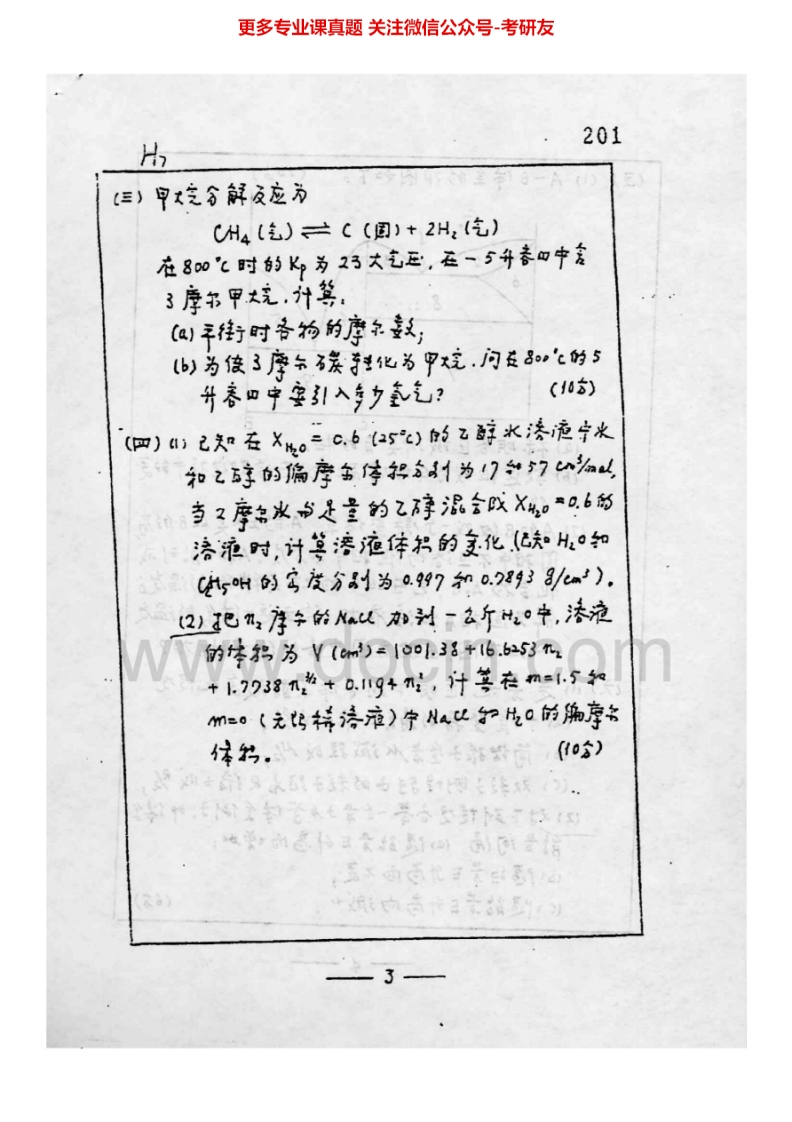 更多专业课真题 关注微信公众号-考研友
201
H7
(三) 甲烷分解反应为
CH4 (气) ⇌ C (固) + 2H2 (气)
在800°C时的Kp为23大气压,在一5升容四中含
3摩尔甲烷.计算:
(a) 平衡时各物的摩尔数;
(b) 为使3摩尔碳转化为甲烷.问在800°C的5
升容四中要引入多少氢气? (10分)
(四) (1) 已知在 XH2O = 0.6 (25°C) 的乙醇水溶液中水
和乙醇的偏摩尔体积分别为17和57 cm³/mol,
当2摩尔水与足量的乙醇混合成XH2O = 0.6的
溶液时,计算溶液体积的变化.(已知H2O和
C2H5OH的密度分别为0.997和0.7893 g/cm³).
(2) 把n2摩尔的NaCl加到一公斤H2O中,溶液
的体积为 V (cm³) = 1001.38 + 16.6253 n2
+ 1.7738 n2^3/2 + 0.1194 n2², 计算在m=1.5和
m=0 (无限稀溶液) 中NaCl和H2O的偏摩尔
体积. (10分)
www.docin.com
— 3 —